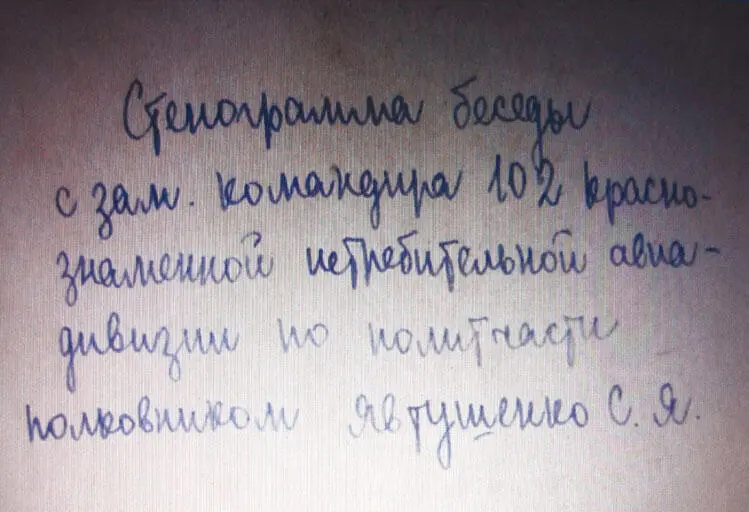 Стенограмма беседы
с зам. командира 102 красно-
знаменной истребительной авиа-
дивизии по политчасти
полковником Явтушенко С. Я.